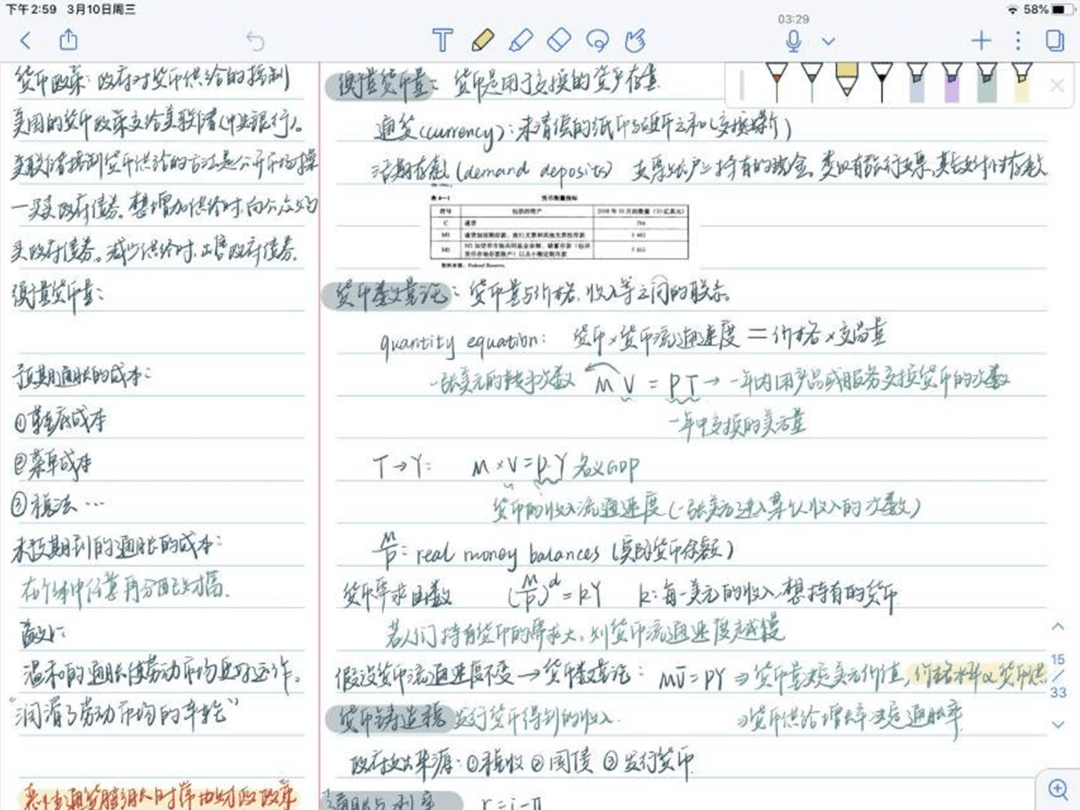 下午2:59 3月10日周三
58%
03:29
货币政策：政府对货币供给的控制
美国的货币政策交给美联储(中央银行)。
美联储控制货币供给的方法是公开市场操
一买卖政府债券。想增加供给时，向公众购
买政府债券。减少供给时，出售政府债券.
衡量货币量：
预期通胀的成本：
①鞋底成本
②菜单成本
③税法…
未预期到的通胀的成本：
在个体中任意再分配财富.
温和的通胀使劳动市场更好运作。
"润滑了劳动市场的车轮"
恶性通货膨胀时常由财政政策
衡量货币量：货币是用于交换的资产存量.
通货(currency)：未清偿的纸币与硬币之和(交换媒介)
活期存款(demand deposits)
表4—1 货币衡量指标
符号 包括的资产 2008年10月的数量(10亿美元)
C 通货 794
M1
M2
资料来源：Federal Reserve.
货币数量论：货币量与价格，收入等之间的联系。
quantity equation: 货币×货币流通速度=价格×交易量
一张美元的转手次数 MV = PT→一年内用产品或服务交换货币的次数
一年中交换的美元量
T→Y: M×V=P.Y 名义GDP
货币的收入流通速度(一张美元进入某人收入的次数)
M/P: real money balances (实际货币余额)
货币需求函数 (M/P)^d=kY k:每一美元的收入想持有的货币
若人们持有货币的需求大，则货币流通速度越慢
假设货币流通速度不变→货币数量论：MV̄=PY⇒货币量决定美元价值，价格水平∝货币供
货币铸造税 发行货币得到的收入. ⇒货币供给增长率决定通胀率
政府支出来源：①税收②国债③发行货币
通胀与利率 r=i-π
15
/
33